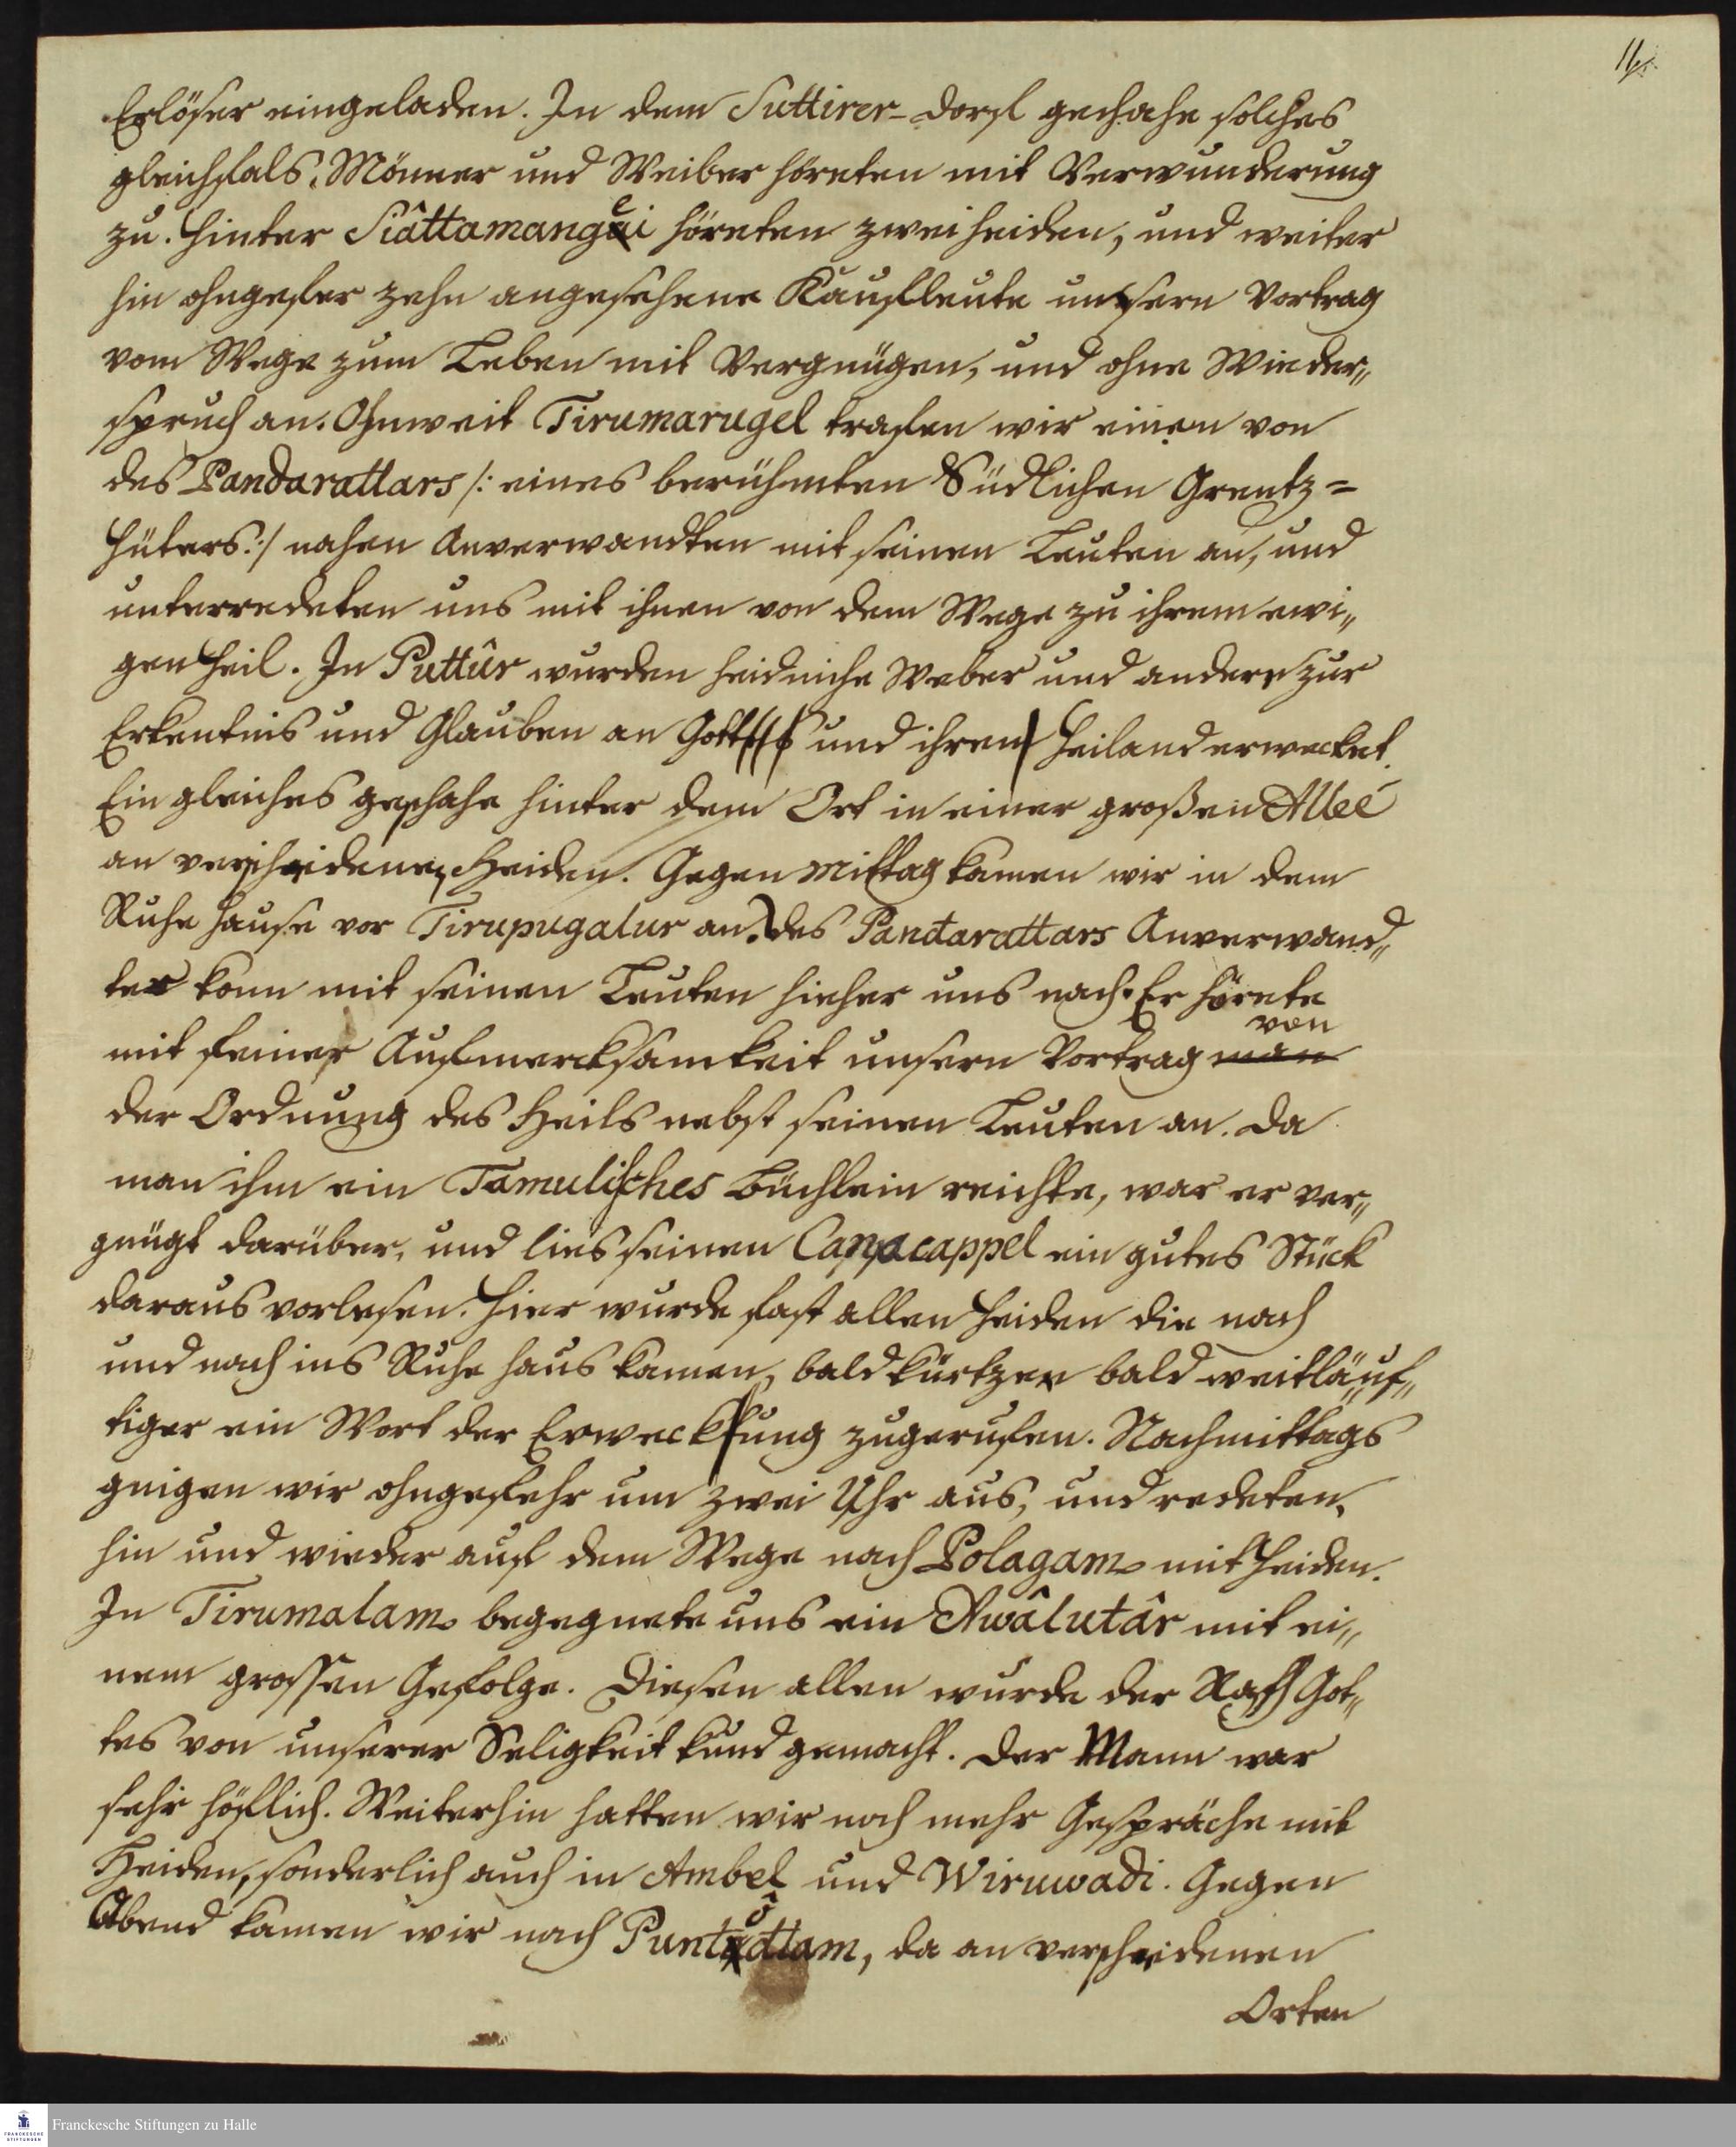 11.
Erlöser eingeladen. In dem Suttirer-dorf geschahe solches
gleichfals. Männer und Weiber höreten mit Verwunderung
zu. Hinter Siâttamangei höreten zwei Heiden, und weiter
hin ohngefer zehn angesehene Kaufleute unsern Vortrag
vom Wege zum Leben mit Vergnügen, und ohne Wieder„
spruch an. Ohnweit Tirumarugel trafen wir einen von
des Pandarattars /: eines berühmten Südlichen Grentz=
Hüters :/ nahen Anverwandten mit seinen Leuten an, und
unterredeten uns mit ihnen von dem Wege zu ihrem ewi„
gen Heil. In Puttûr wurden heidniche Weber und andere zur
Erkentnis und Glauben an Gott und ihren Heiland erwecket.
Ein gleiches geschahe hinter dem Ort in einer großen Alleé
an verscheidenen Heiden. Gegen Mittag kamen wir in dem
Ruhe Hause vor Tirupugalur an. des Pandarattars Anverwand„
ter kom mit seinen Leuten hieher uns nach. Er hörete
mit feiner Aufmercksamkeit unsern Vortrag von
der Ordnung des Heils nebst seinen Leuten an. Da
man ihm ein Tamulisches Büchlein reichte, war er ver„
gnügt darüber, und lies seinen Canacappel ein gutes Stück
daraus vorlesen. Hier wurde fast allen Heiden die nach
und nach ins Ruhe haus kamen, bald kürtzer bald weitläuf„
tiger ein Wort der Erweckung zugerufen. Nachmittags
gnigen wir ohngefehr um zwei Uhr aus, und redeten
hin und wieder auf dem Wege nach Polagam mit Heiden.
In Tirumalam begegnete uns ein Awâlutâr mit ei„
nem grossen Gefolge. Diesen allen wurde der Rath Got„
tes von unserer Seligkeit kund gemacht. Der Mann war
sehr höflich. Weiterhin hatten wir noch mehr Gespräche mit
Heiden, sonderlich auch in Ambel und Wiruwadi. Gegen
Abend kamen wir nach Puntôttam, da an verscheidenen
Orten
Franckesche Stiftungen zu Halle